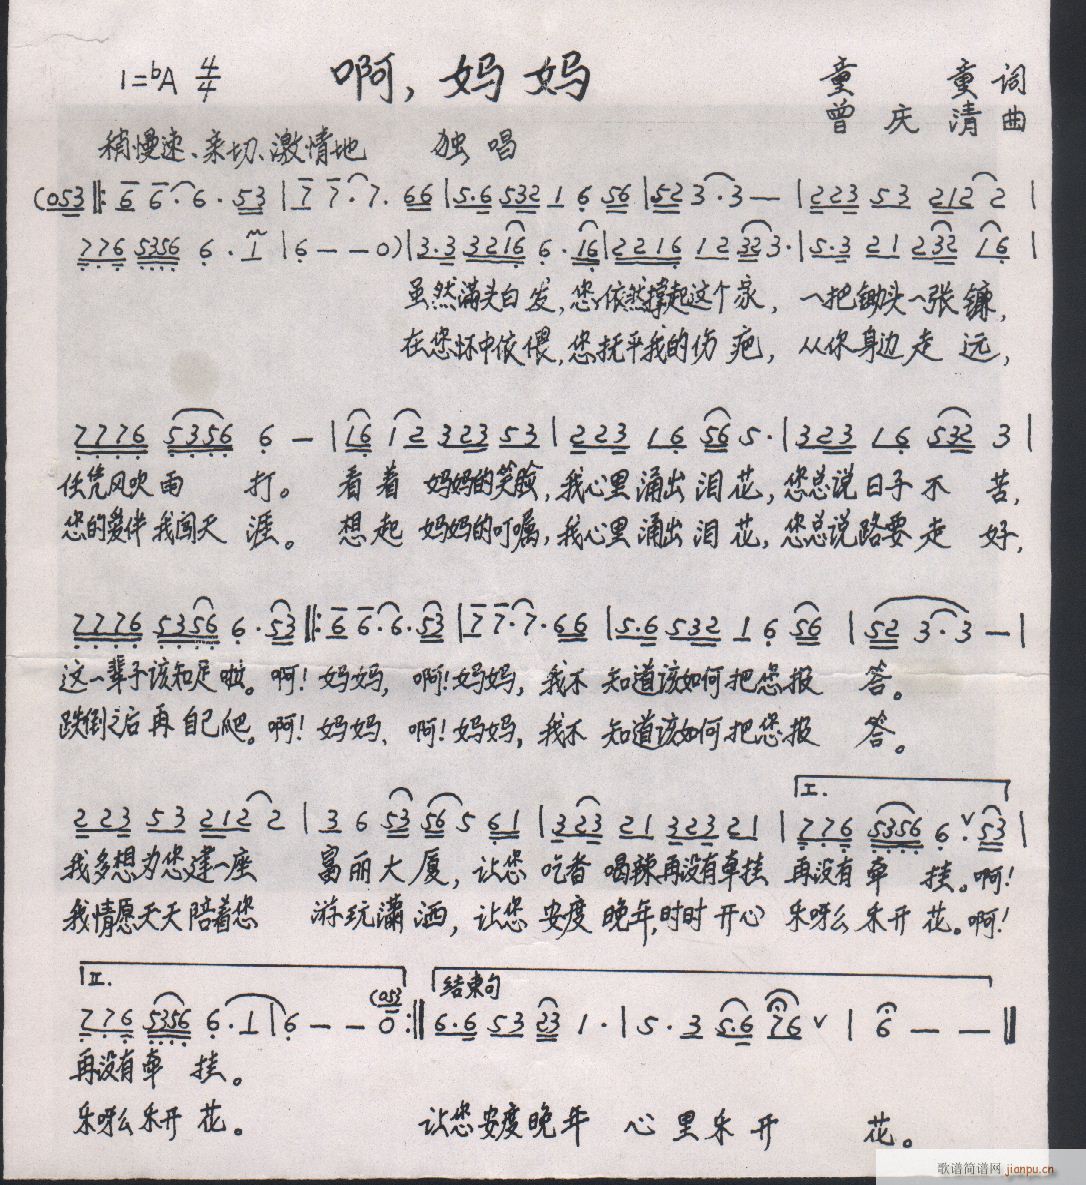 1=ᵇA 4/4 啊，妈妈 童 童 词
曾 庆 清 曲
稍慢速、亲切、激情地 独唱
(053 ‖: 6 6·6· 53 | 7 7·7· 66 | 5·6 532 1 6 56 | 52 3·3 — | 223 53 212 2 |
776 5356 6 · 1 | 6 — — 0) | 3·3 3216 6 · 16 | 2216 12 323· | 5·3 21 232 16 |
虽然满头白发，您依然撑起这个家，一把锄头一张镰，
在您怀中依偎，您抚平我的伤疤，从你身边走远，
7776 5356 6 — | 16 12 323 53 | 223 16 56 5· | 323 16 532 3 |
任凭风吹雨打。看着妈妈的笑脸，我心里涌出泪花，您总说日子不苦，
您的爱伴我闯天涯。想起妈妈的叮嘱，我心里涌出泪花，您总说路要走好，
7776 5356 6·53 ‖: 6 6·6·53 | 7 7·7·66 | 5·6 532 1 6 56 | 52 3·3 — |
这一辈子该知足啦。啊！妈妈，啊！妈妈，我不知道该如何把您报答。
跌倒之后再自己爬。啊！妈妈、啊！妈妈，我不知道该如何把您报答。
I.
223 53 212 2 | 3 6 53 56 5 61 | 323 21 323 21 | 776 5356 6 ∨ 53 |
我多想为您建一座富丽大厦，让您吃香喝辣再没有牵挂再没有牵挂。啊！
我情愿天天陪着您游玩潇洒，让您安度晚年，时时开心乐呀么乐开花。啊！
II. 结束句
776 5356 6·1 | 6 — — 0 (053 :‖ 6·6 53 23 1· | 5·3 5·6 76 ∨ | 6 — — ‖
再没有牵挂。
乐呀么乐开花。 让您安度晚年 心里乐开花。
歌谱简谱网 jianpu.cn